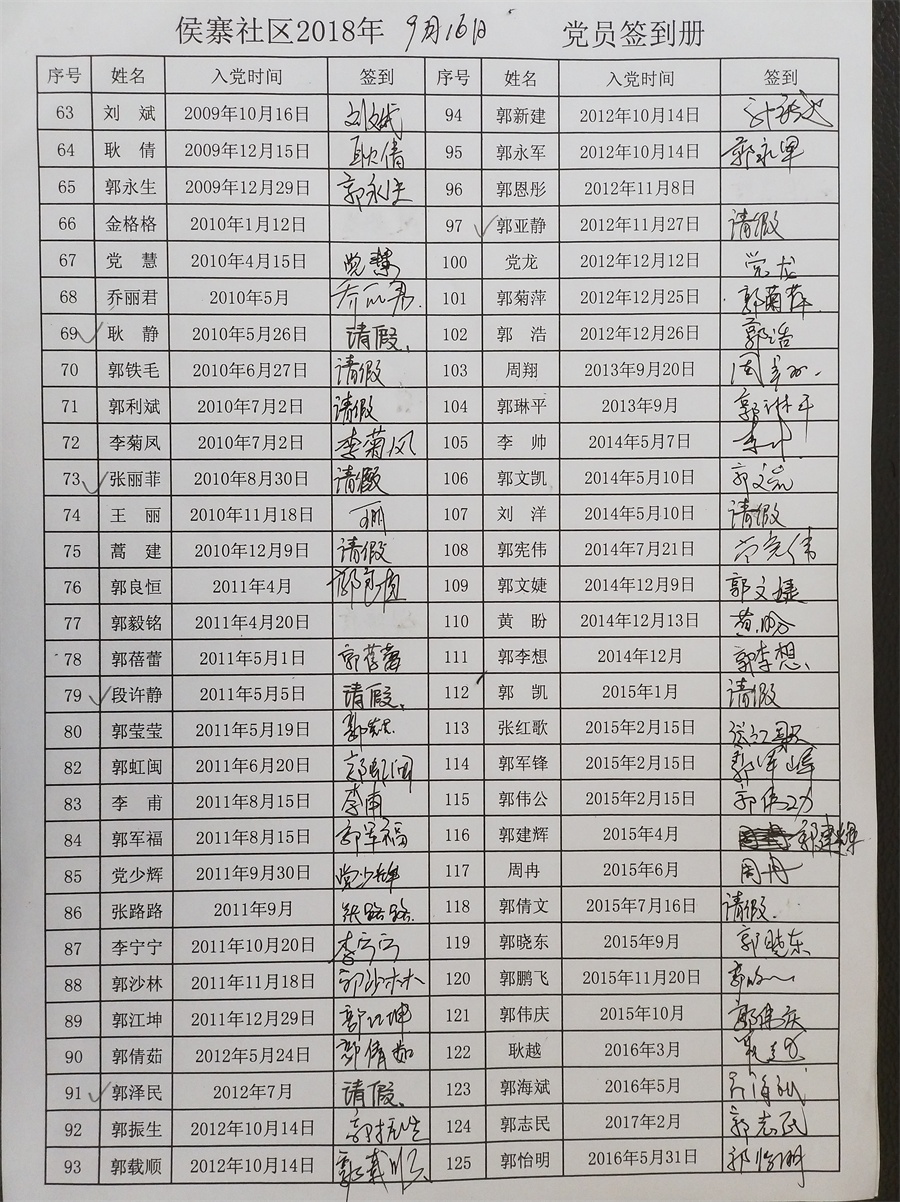 侯寨社区2018年 9月16日 党员签到册
序号 姓名 入党时间 签到 序号 姓名 入党时间 签到
63 刘斌 2009年10月16日 刘斌 94 郭新建 2012年10月14日
64 耿倩 2009年12月15日 耿倩 95 郭永军 2012年10月14日 郭永军
65 郭永生 2009年12月29日 郭永生 96 郭恩彤 2012年11月8日
66 金格格 2010年1月12日 97 郭亚静 2012年11月27日 请假
67 党慧 2010年4月15日 党慧 100 党龙 2012年12月12日 党龙
68 乔丽君 2010年5月 乔丽君 101 郭菊萍 2012年12月25日 郭菊萍
69 耿静 2010年5月26日 请假 102 郭浩 2012年12月26日 郭浩
70 郭铁毛 2010年6月27日 请假 103 周翔 2013年9月20日 周翔
71 郭利斌 2010年7月2日 请假 104 郭琳平 2013年9月 郭琳平
72 李菊凤 2010年7月2日 李菊凤 105 李帅 2014年5月7日 李帅
73 张丽菲 2010年8月30日 请假 106 郭文凯 2014年5月10日 郭文凯
74 王丽 2010年11月18日 王丽 107 刘洋 2014年5月10日 请假
75 蒿建 2010年12月9日 请假 108 郭宪伟 2014年7月21日 郭宪伟
76 郭良恒 2011年4月 郭良恒 109 郭文婕 2014年12月9日 郭文婕
77 郭毅铭 2011年4月20日 110 黄盼 2014年12月13日 黄盼
78 郭蓓蕾 2011年5月1日 郭蓓蕾 111 郭李想 2014年12月 郭李想
79 段许静 2011年5月5日 请假 112 郭凯 2015年1月 请假
80 郭莹莹 2011年5月19日 郭莹莹 113 张红歌 2015年2月15日 张红歌
82 郭虹闽 2011年6月20日 郭虹闽 114 郭军锋 2015年2月15日 郭军峰
83 李甫 2011年8月15日 李甫 115 郭伟公 2015年2月15日 郭伟功
84 郭军福 2011年8月15日 郭军福 116 郭建辉 2015年4月 郭建辉
85 党少辉 2011年9月30日 党少辉 117 周冉 2015年6月 周冉
86 张路路 2011年9月 张路路 118 郭倩文 2015年7月16日 请假
87 李宁宁 2011年10月20日 李宁宁 119 郭晓东 2015年9月 郭晓东
88 郭沙林 2011年11月18日 郭沙林 120 郭鹏飞 2015年11月20日
89 郭江坤 2011年12月29日 郭江坤 121 郭伟庆 2015年10月 郭伟庆
90 郭倩茹 2012年5月24日 郭倩茹 122 耿越 2016年3月 耿越
91 郭泽民 2012年7月 请假 123 郭海斌 2016年5月 郭海斌
92 郭振生 2012年10月14日 郭振生 124 郭志民 2017年2月 郭志民
93 郭载顺 2012年10月14日 郭载顺 125 郭怡明 2016年5月31日 郭怡明